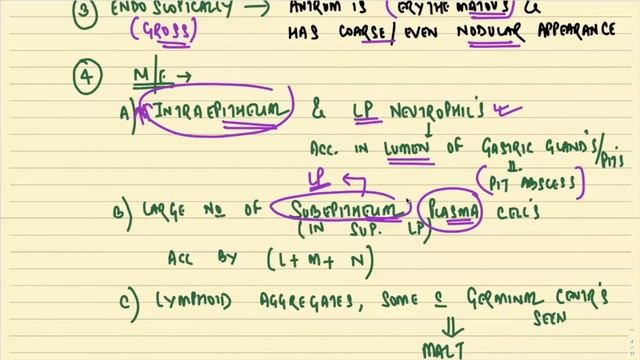 ③ ENDOSCOPICALLY → ANTRUM IS (ERYTHEMATOUS) &
(GROSS) HAS COARSE/EVEN NODULAR APPEARANCE
④ M/E →
A) INTRAEPITHELIAL & LP NEUTROPHIL'S ↙
↓
ACC. IN LUMEN OF GASTRIC GLAND'S/PITS
LP ↩ (PIT ABSCESS)
B) LARGE NO OF SUBEPITHELIAL PLASMA CELL'S
(IN SUP. LP)
ACC BY (L+M+N)
C) LYMPHOID AGGREGATES, SOME C̄ GERMINAL CENTR'S
SEEN
⇓
MALT